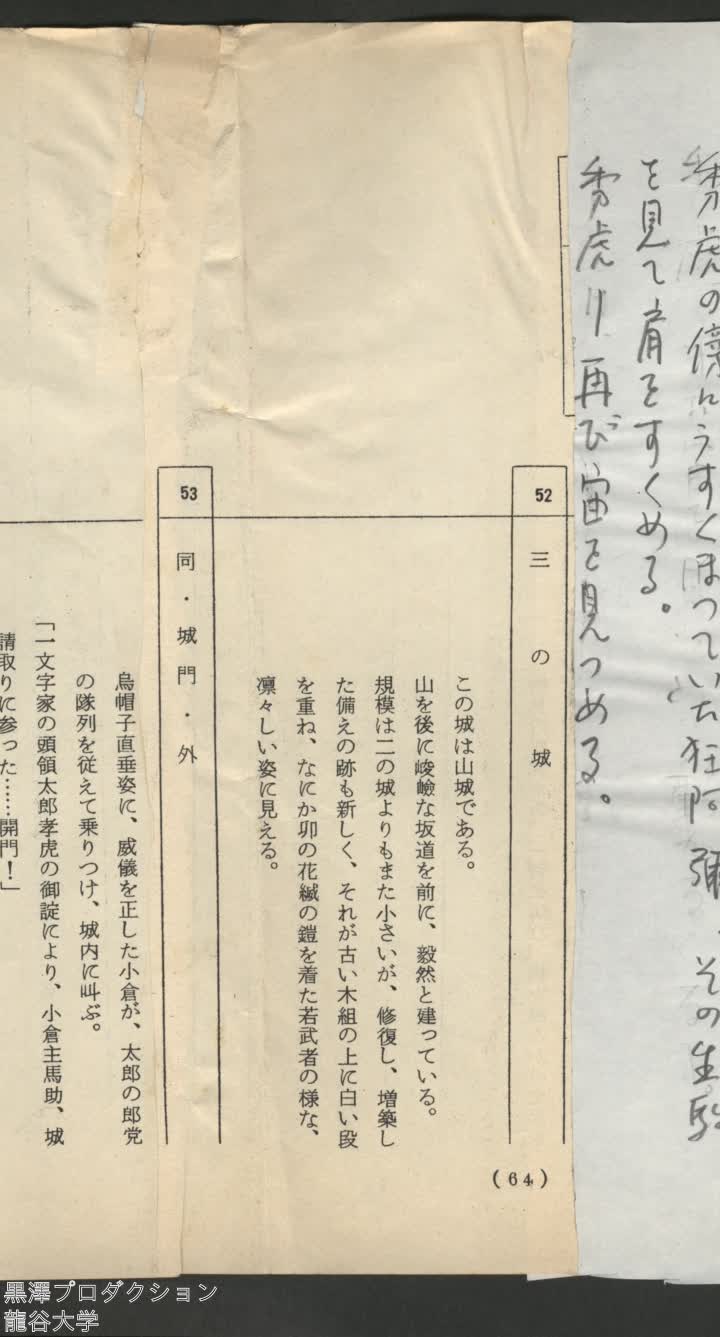 秀虎の傍にうずくまっていた狂阿彌、その生駒
を見て肩をすくめる。
秀虎は再び宙を見つめる。
(64)
52
三の城
この城は山城である。
山を後に峻嶮な坂道を前に、毅然と建っている。
規模は二の城よりもまた小さいが、修復し、増築し
た備えの跡も新しく、それが古い木組の上に白い段
を重ね、なにか卯の花縅の鎧を着た若武者の様な、
凛々しい姿に見える。
53
同・城門・外
烏帽子直垂姿に、威儀を正した小倉が、太郎の郎党
の隊列を従えて乗りつけ、城内に叫ぶ。
「一文字家の頭領太郎孝虎の御諚により、小倉主馬助、城
請取りに参った……開門！」
黒澤プロダクション
龍谷大学